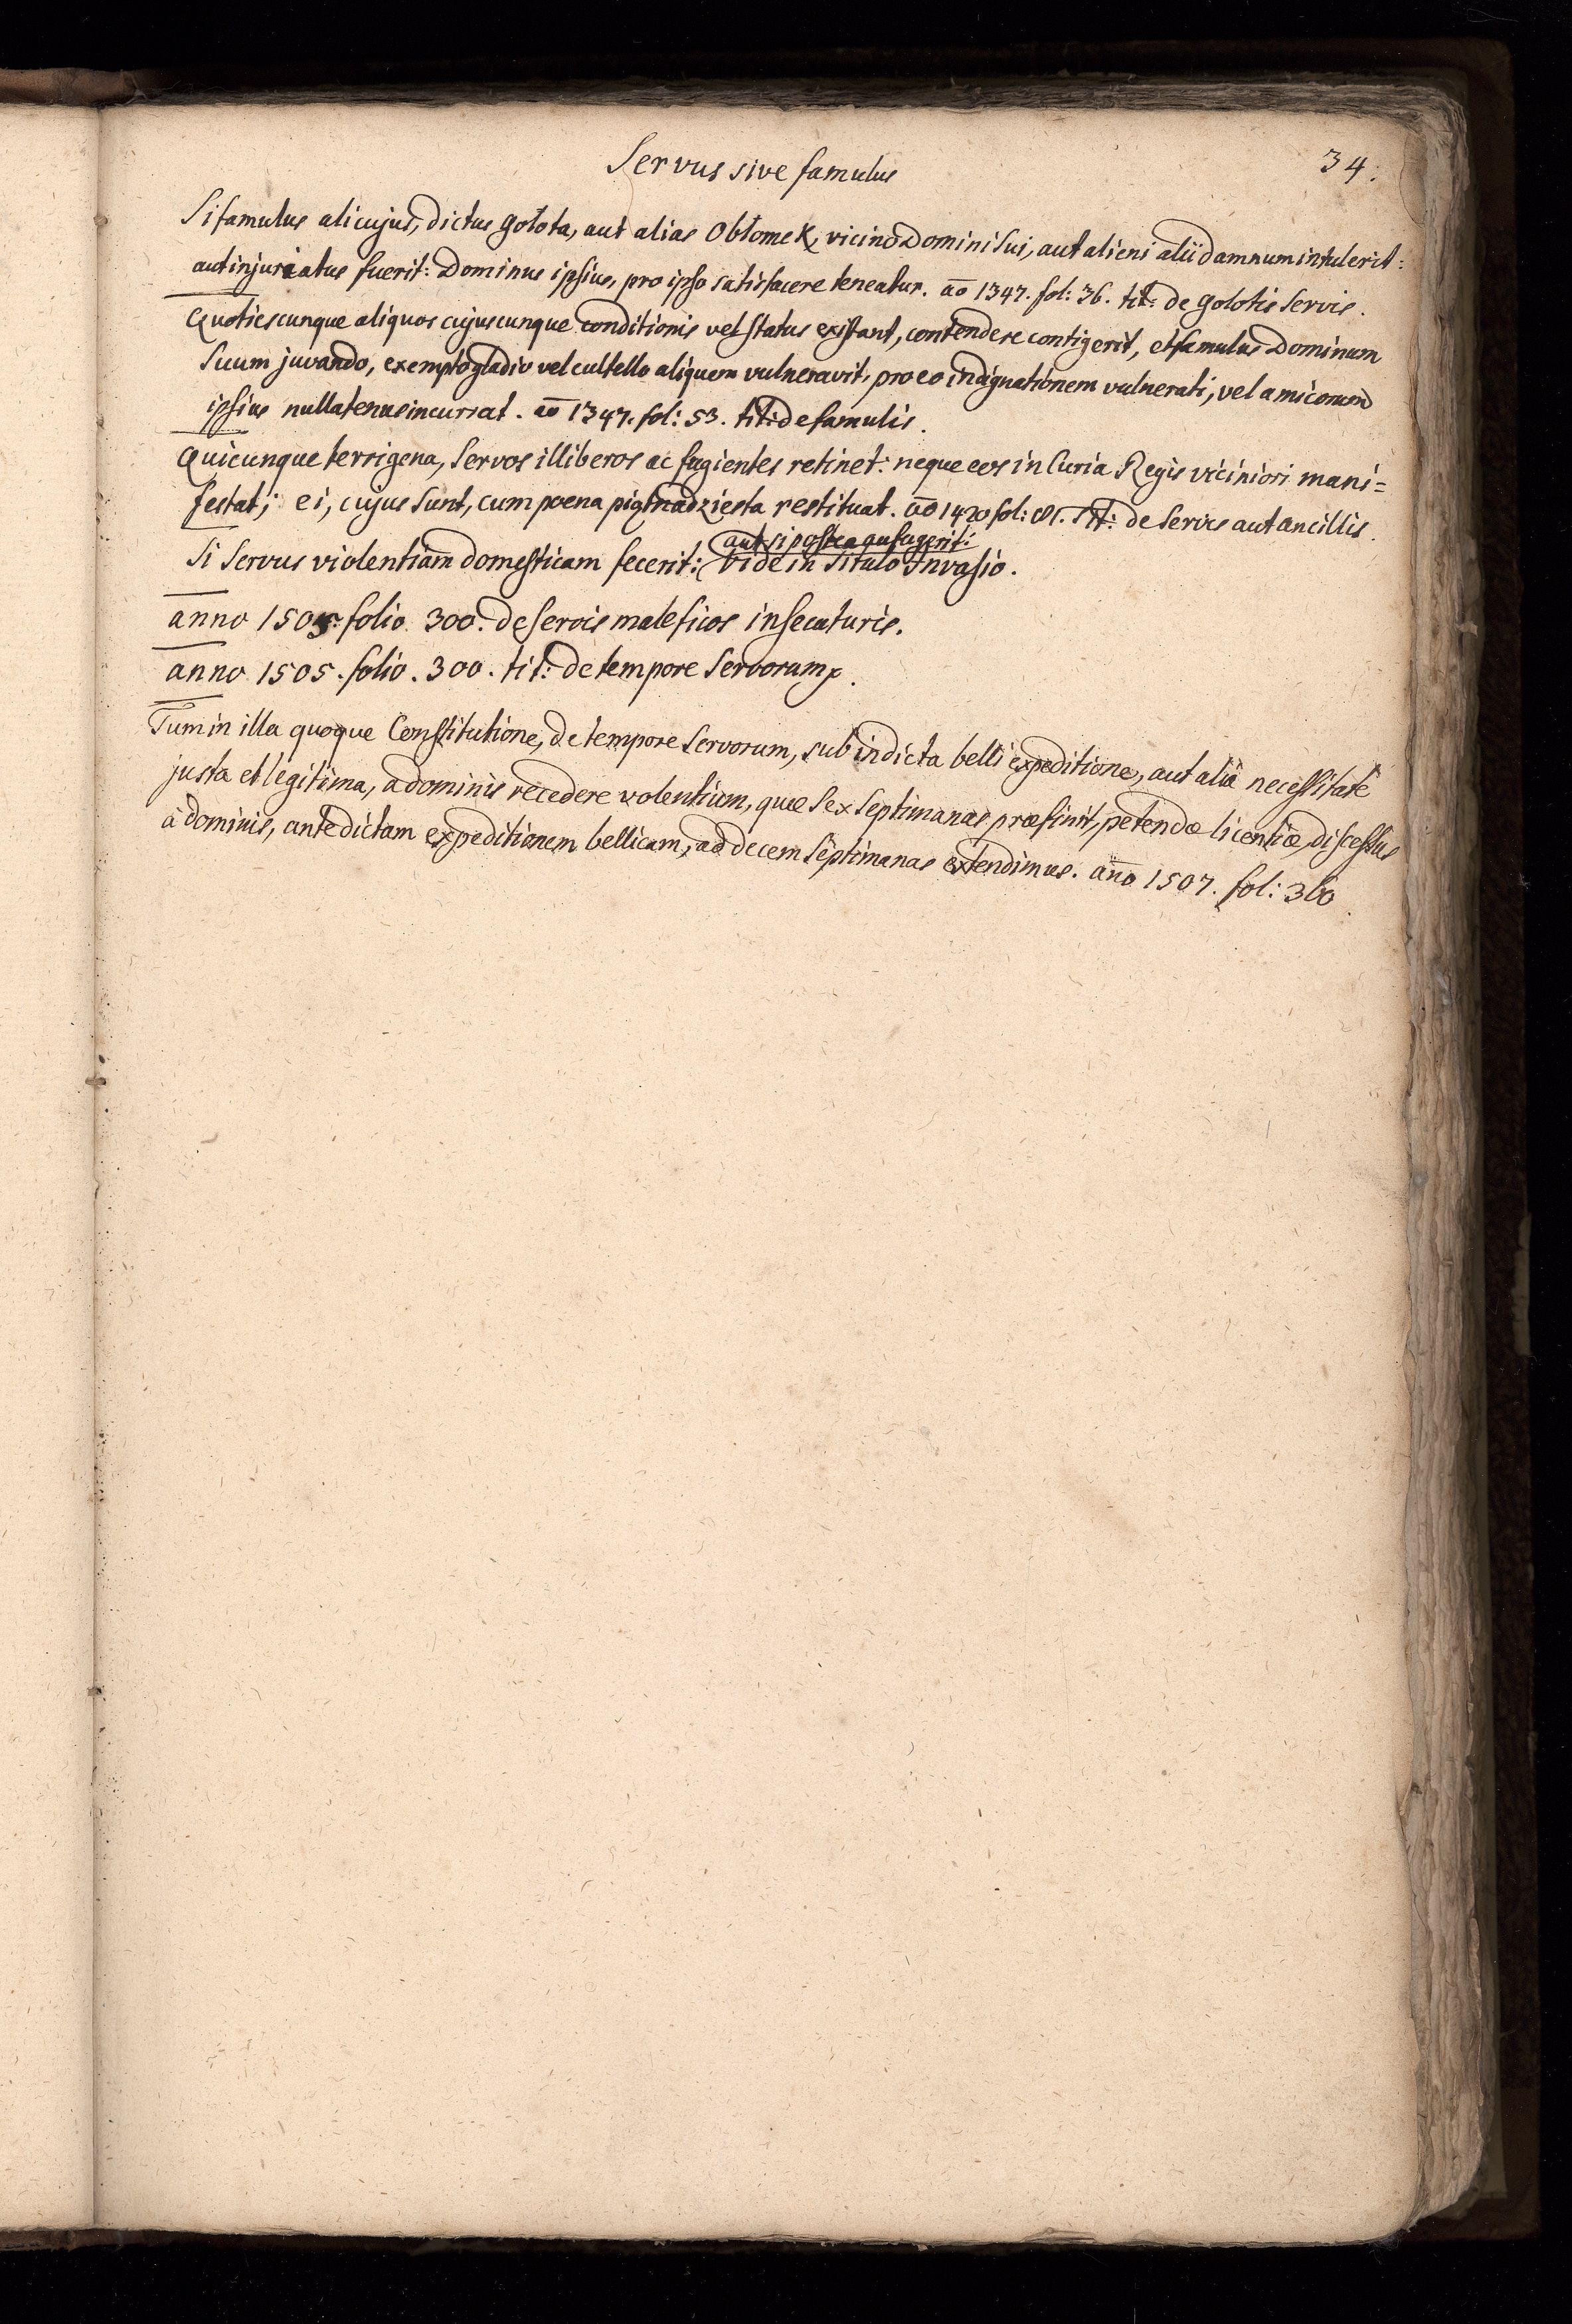 Servus sive famulus
34.
Si famulus alicujus, dictus gołota, aut alias Obłomek, vicino Domini sui, aut alieni alii damnum intulerit:
aut injuriatus fuerit: Dominus ipsius, pro ipso satisfacere teneatur. ao 1347. fol: 36. tit: de golotis servis.
Quotiescunque aliquos cujuscunque conditionis vel status existant, contendere contigerit, et famulus Dominum
suum juvando, exempto gladio vel cultello aliquem vulneravit, pro eo indignationem vulnerati, vel amicorum
ipsius nullatenus incurrat. ao 1347. fol: 53. tit: de famulis.
Quicunque terrigena, servos illiberos ac fugientes retinet: neque eos in Curia Regis viciniori mani=
festat; ei, cujus sunt, cum poena piętnadziesta restituat. ao 1420 fol: 81. tit: de servis aut ancillis.
aut si postea aufugerit:
Si servus violentiam domesticam fecerit: vide in titulo Invasio.
anno 1505. folio 300. de servis maleficos insecuturis.
anno 1505. folio. 300. tit: de tempore servorum.
Tum in illa quoque Constitutione, de tempore servorum, sub indicta belli expeditione, aut alia necessitate
justa et legitima, a dominis recedere volentium, quae sex septimanas praefinit, petendae licentiae, discessus
à dominis, ante dictam expeditionem bellicam, ad decem septimanas extendimus. anno 1507. fol: 360